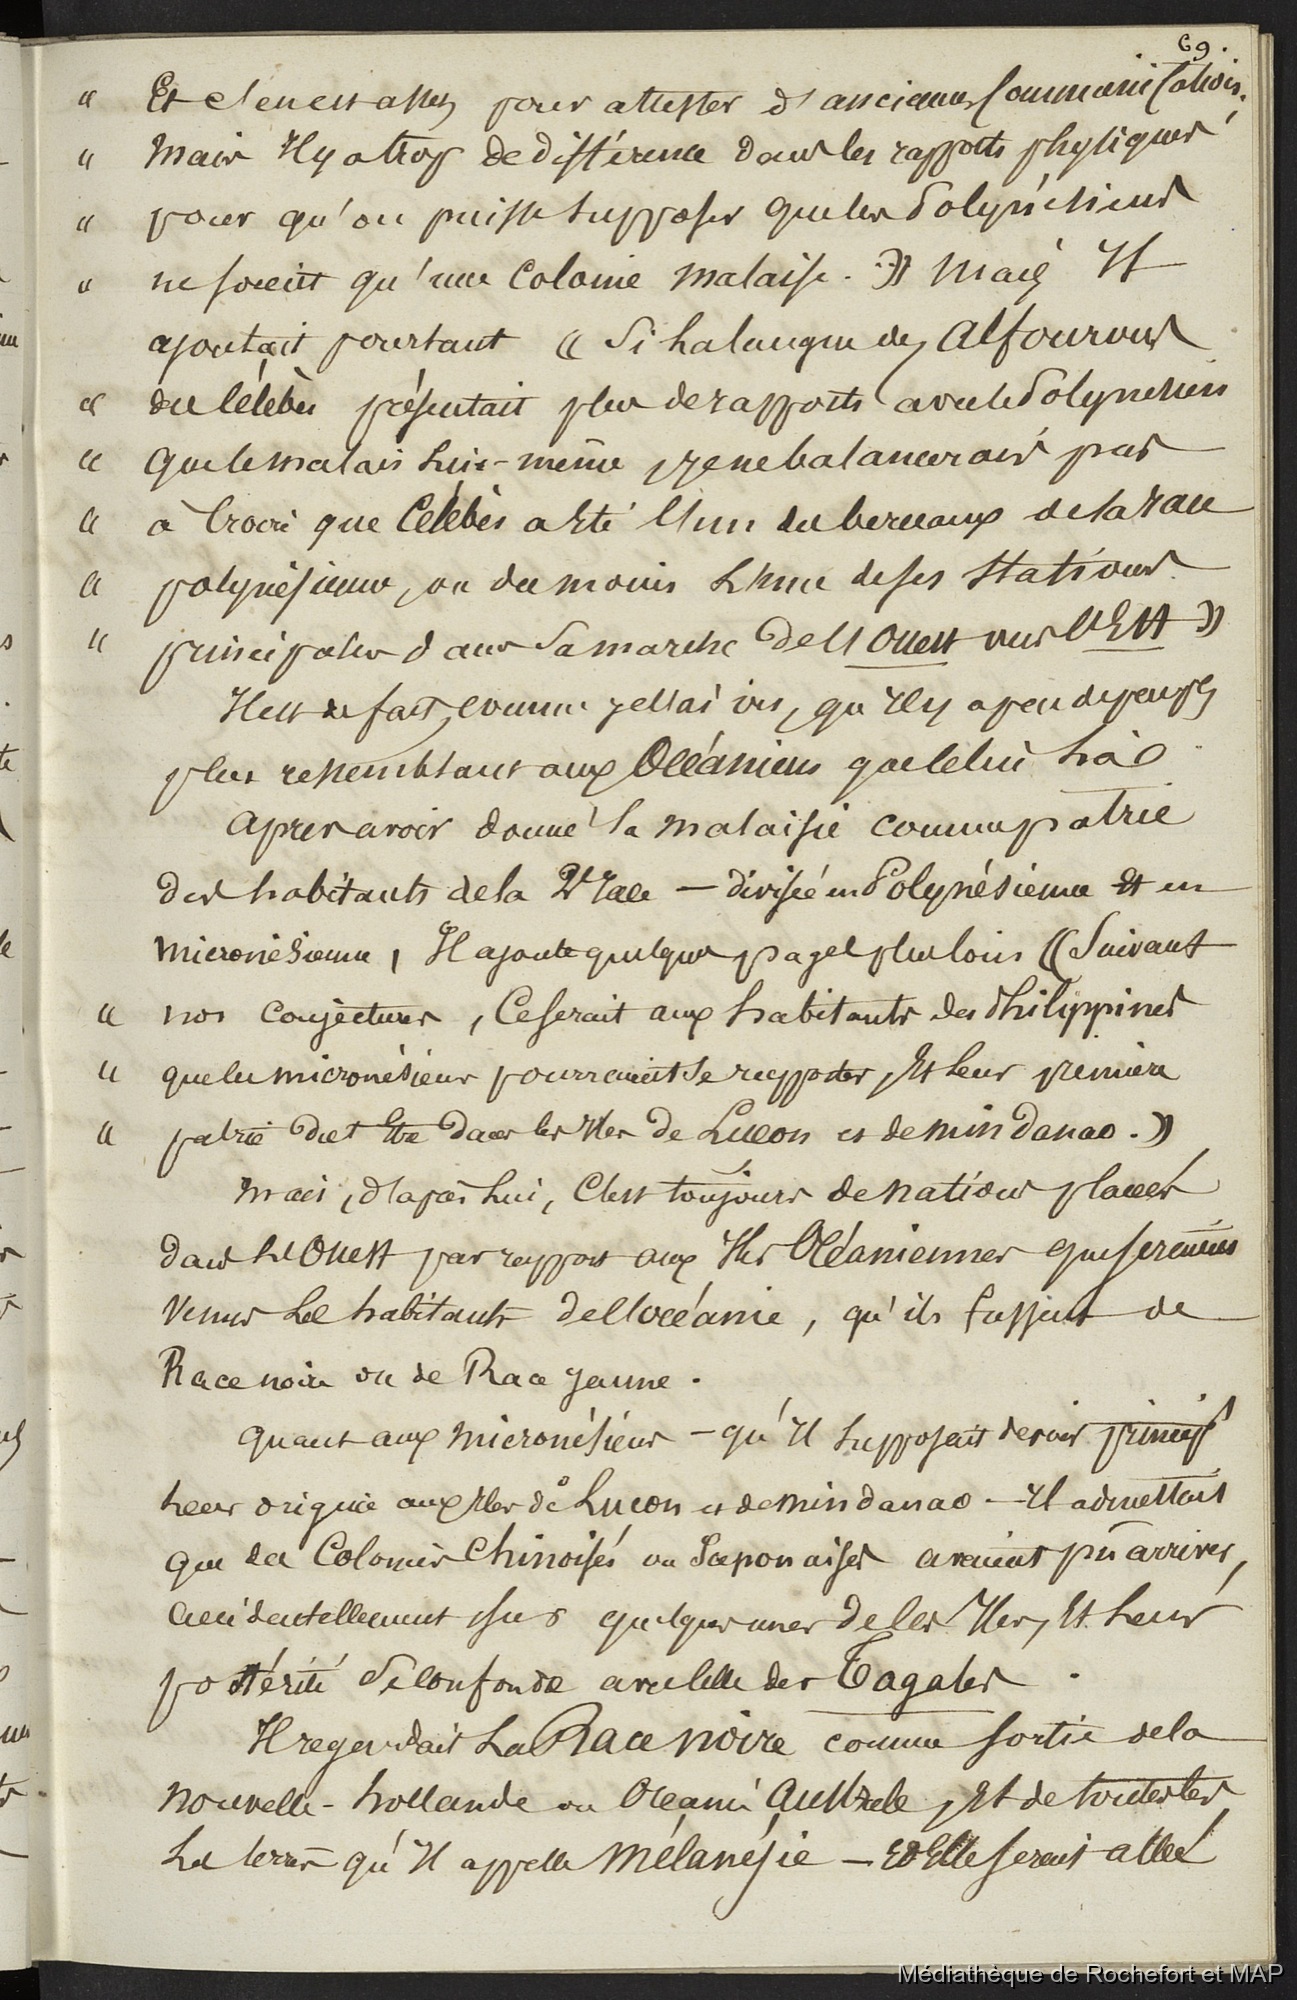 69.
" Et c'en est assez pour attester d'anciennes Communications.
" Mais Il y a trop de différence dans les rapports physiques
" pour qu'on puisse supposer que les Polynésiens
" ne soient qu'une Colonie malaise. » Mais Il
ajoutait pourtant « Si la langue des Alfourous
" de Célèbes présentait plus de rapports avec le Polynésien
" que le malais lui-même, je ne balancerais pas
" à Croire que Célèbes a Eté l'un des berceaux de la race
" polynésienne, ou du moins l'une de ses Stations
" principales dans sa marche de l'Ouest vers l'Est »
Il est de fait, comme je l'ai vu, qu'Il y a peu de peuples
plus ressemblants aux Océaniens que celui là
Après avoir donné la Malaisie comme patrie
des habitants de la 2e race — divisée en Polynésienne Et en
micronésienne, Il ajoute quelques pages plus loin « Suivant
" nos conjectures, Ce serait aux habitants des Philippines
" que les micronésiens pourraient se rapporter, Et leur première
" patrie doit Etre dans les Iles de Luçon et de mindanao. »
Mais, d'après Lui, C'est toujours de nations placées
dans l'Ouest par rapport aux Iles Océaniennes que seraient
venus les habitants de l'océanie, qu'ils fussent de
Race noire ou de Race jaune.
Quant aux micronésiens — qu'Il supposait devoir
leur origine aux Iles de Luçon et de mindanao — Il admettait
que des Colonies Chinoises ou Japonaises avaient pu arriver,
accidentellement sur quelques unes de ces Iles, Et leur
postérité Se confondre avec celle des Tagales.
Il regardait La Race noire comme sortie de la
nouvelle-hollande ou Océanie Australe, Et de toutes les
les terres qu'Il appelle Mélanésie — Et Elle serait allée
Médiathèque de Rochefort et MAP